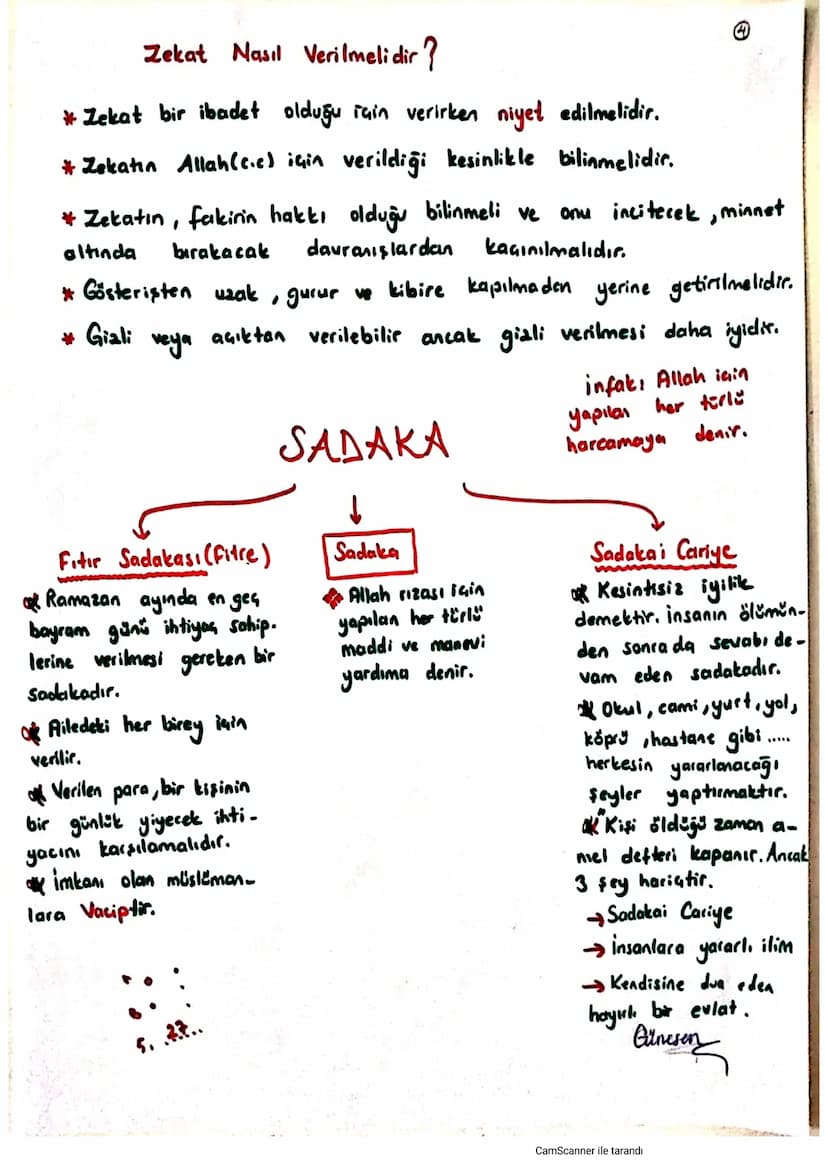 4
Zekat Nasıl Verilmelidir?
* Zekat bir ibadet olduğu için verirken niyet edilmelidir.
* Zekatın Allah(c.c) için verildiği kesinlikle bilinmelidir.
* Zekatın, fakirin hakkı olduğu bilinmeli ve onu incitecek, minnet
altında bırakacak davranışlardan kaçınılmalıdır.
* Gösterişten uzak, gurur ve kibire kapılmadan yerine getirilmelidir.
* Gizli veya açıktan verilebilir ancak gizli verilmesi daha iyidir.
infak: Allah için
yapılan her türlü
harcamaya denir.
SADAKA
Fıtır Sadakası (Fitre)
* Ramazan ayında en geç
bayram günü ihtiyaç sahip-
lerine verilmesi gereken bir
sadakadır.
* Ailedeki her birey için
verilir.
* Verilen para, bir kişinin
bir günlük yiyecek ihti-
yacını karşılamalıdır.
* İmkanı olan müslüman-
lara Vaciptir.
Sadaka
Allah rızası için
yapılan her türlü
maddi ve manevi
yardıma denir.
Sadakai Cariye
* Kesintisiz iyilik
demektir. insanın ölümün-
den sonra da sevabı de-
vam eden sadakadır.
* Okul, cami, yurt, yol,
köprü, hastane gibi .....
herkesin yararlanacağı
şeyler yaptırmaktır.
* "Kişi öldüğü zaman a-
mel defteri kapanır. Ancak
3 şey hariçtir.
→ Sadakai Cariye
→ İnsanlara yararlı ilim
→ Kendisine dua eden
hayırlı bir evlat.
CamScanner ile tarandı